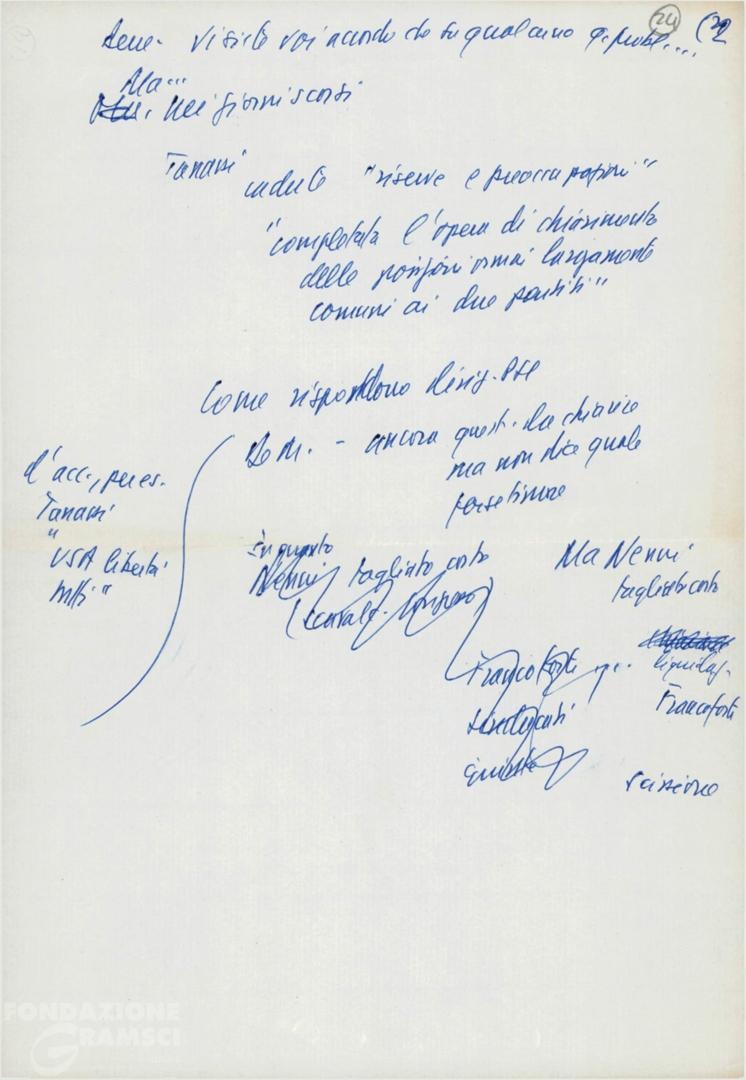 24 (22
Bene - vi siete voi accordo che su qualcuno q. probl....
Ma...
nei giorni scorsi
Tanassi
caduto "riserve e preoccupazioni"
"completata l'opera di chiarimento
delle posizioni ormai largamente
comuni ai due partiti"
Come rispondono dirig. PSI
De M. - ancora quest. da chiarire
ma non dice quale
forse timore
d'acc., per es.
Tanassi
"USA libertà
tutti"
in quanto
Nenni tagliato corto
Ma Nenni
tagliato corto
liquidaz.
Francoforte
Francoforte
sindacati
scissione
FONDAZIONE
GRAMSCI